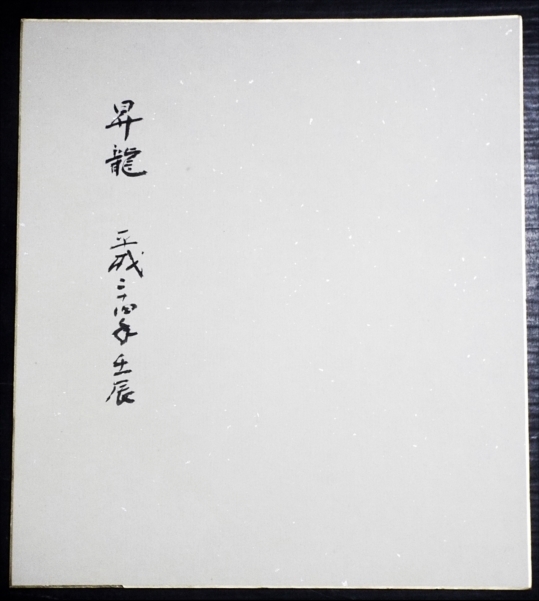 昇龍 平成二十四年 壬辰